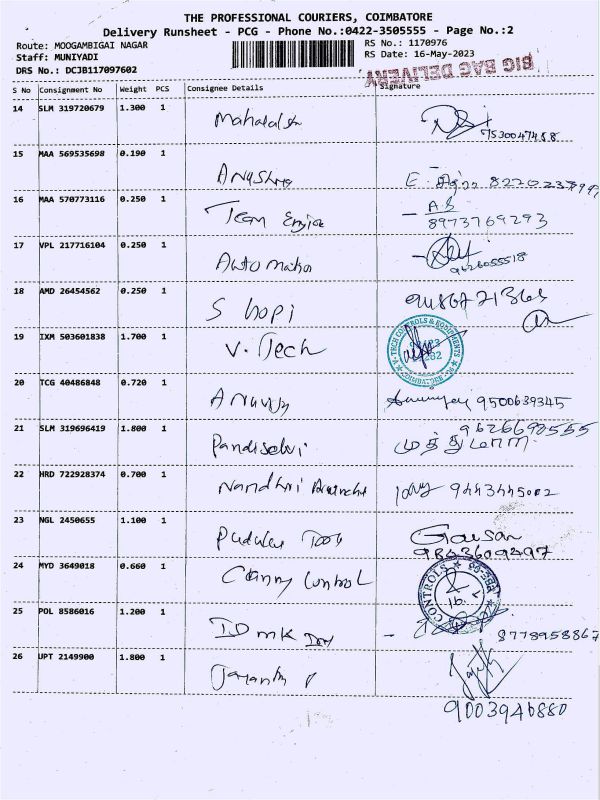 THE PROFESSIONAL COURIERS, COIMBATORE
Delivery Runsheet - PCG - Phone No.:0422-3505555 - Page No.:2
Route: MOOGAMBIGAI NAGAR
RS No.: 1170976
Staff: MUNIYADI
RS Date: 16-May-2023
DRS No.: DCJB117097602
BIG BAG DELIVERY
S No Consignment No Weight PCS Consignee Details Signature
14 SLM 319720679 1.300 1
7530047458
15 MAA 569535698 0.190 1
16 MAA 570773116 0.250 1 Team
A.B
8973769293
17 VPL 217716104 0.250 1 Automation
9626055518
18 AMD 26454562 0.250 1 S hopi
19 IXM 503601838 1.700 1 V. Tech
V-TECH CONTROLS & EQUIPMENTS
COIMBATORE
20 TCG 40486848 0.720 1
9500639345
21 SLM 319696419 1.800 1 Pandiselvi
முத்துமாரி
22 HRD 722928374 0.700 1 Nandhni
Jay 9443445002
23 NGL 2450655 1.100 1
Gowsan
9843609297
24 MYD 3649018 0.660 1 Control
CONTROLS
25 POL 8586016 1.200 1
8778958867
26 UPT 2149900 1.800 1 Jayanthi P
9003940880